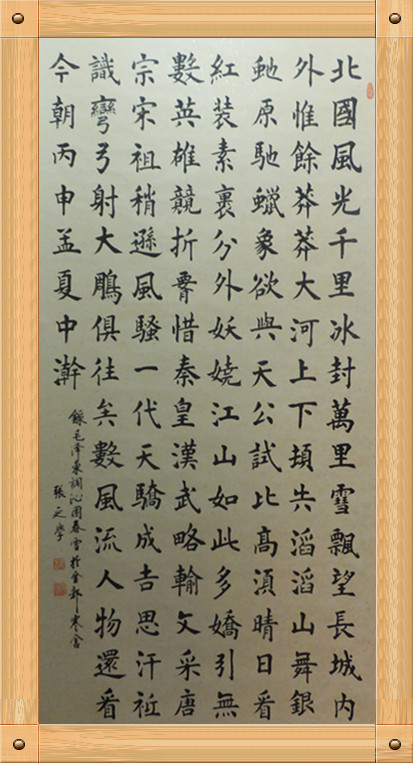 北國風光千里冰封萬里雪飄望長城内
外惟餘莽莽大河上下頓失滔滔山舞銀
虵原馳蠟象欲與天公試比高須晴日看
紅装素裹分外妖嬈江山如此多嬌引無
數英雄競折腰惜秦皇漢武略輸文采唐
宗宋祖稍遜風騷一代天驕成吉思汗祗
識彎弓射大鵰俱往矣數風流人物還看
今朝丙申孟夏中澣
錄毛澤東詞沁園春雪於金都寒舍